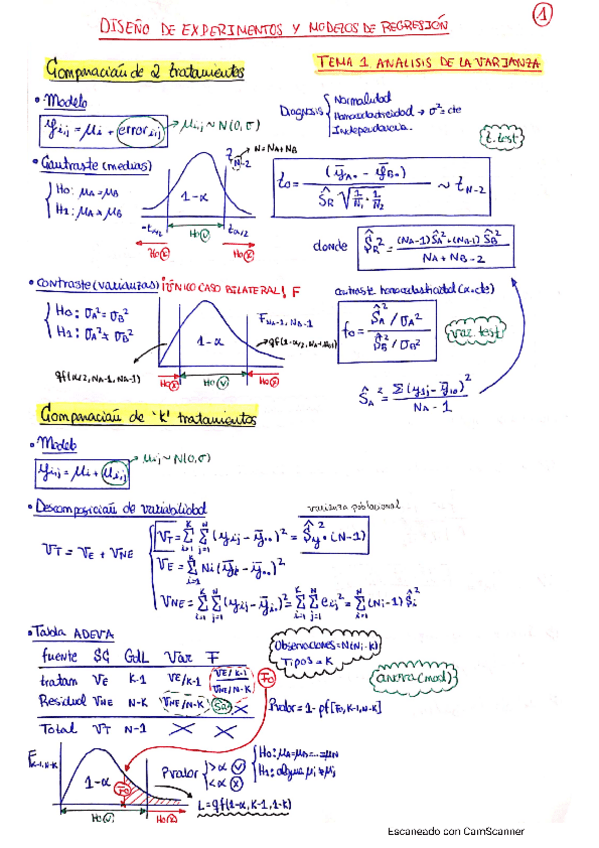 DISEÑO DE EXPERIMENTOS Y MODELOS DE REGRESIÓN
1
Comparación de 2 tratamientos
TEMA 1. ANALISIS DE LA VARIANZA
• Modelo
yij = μi + errorij → μij ~ N(0, σ)
Diagnosis { Normalidad
Homocedasticidad → σ² = cte
Independencia.
t.test
• Contraste (medias)
{ H0: μA = μB
H1: μA ≠ μB
1-α
tN-2
N = NA + NB
-tα/2
tα/2
H0 (X)
H0 (V)
H0 (X)
t0 = (ȳA• - ȳB•) / ŜR √(1/n1 · 1/n2) ~ tN-2
donde ŜR² = (NA-1)ŜA² + (NB-1)ŜB² / NA + NB - 2
• Contraste (varianzas) ¡ÚNICO CASO BILATERAL! F
{ H0: σA² = σB²
H1: σA² ≠ σB²
1-α
FNA-1, NB-1
qf(α/2, NA-1, NA-1)
H0 (X)
H0 (V)
H0 (X)
contraste homocedasticidad
f0 = ŜA² / σA² / ŜB² / σB²
var.test
ŜA² = Σ(yij - ȳi•)² / NA - 1
Comparación de 'K' tratamientos
• Modelo
yij = μi + μij → μij ~ N(0, σ)
• Descomposición de variabilidad
varianza poblacional
VT = VE + VNE
{ VT = Σ Σ (yij - ȳ••)² = Ŝy² · (N-1)
VE = Σ Ni (ȳi - ȳ••)²
VNE = Σ Σ (yij - ȳi•)² = Σ Σ eij² = Σ (Ni-1) Ŝi²
• Tabla ADEVA
Observaciones = N (Ni · K)
Tipos = K
anova(mod)
fuente SC GdL Var F
tratam VE K-1 VE/K-1 VE/K-1 / VNE/N-K F0
Residual VNE N-K VNE/N-K X
Total VT N-1 X X
Pvalor = 1 - pf[F0, K-1, N-K]
FK-1, N-K
1-α
F0
Pvalor { > α (V)
< α (X)
{ H0: μA = μB = ... = μN
H1: alguna μi ≠ μj
L = qf(1-α, K-1, 1-K)
H0 (V)
H0 (X)
Escaneado con CamScanner